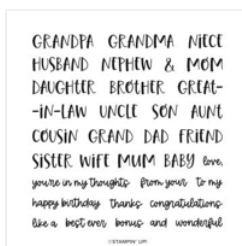 GRANDPA GRANDMA NIECE
HUSBAND NEPHEW & MOM
DAUGHTER BROTHER GREAT-
-IN-LAW UNCLE SON AUNT
COUSIN GRAND DAD FRIEND
SISTER WIFE MUM BABY love,
you're in my thoughts from your to my
happy birthday thanks congratulations
like a best ever bonus and wonderful
©STAMPIN' UP!